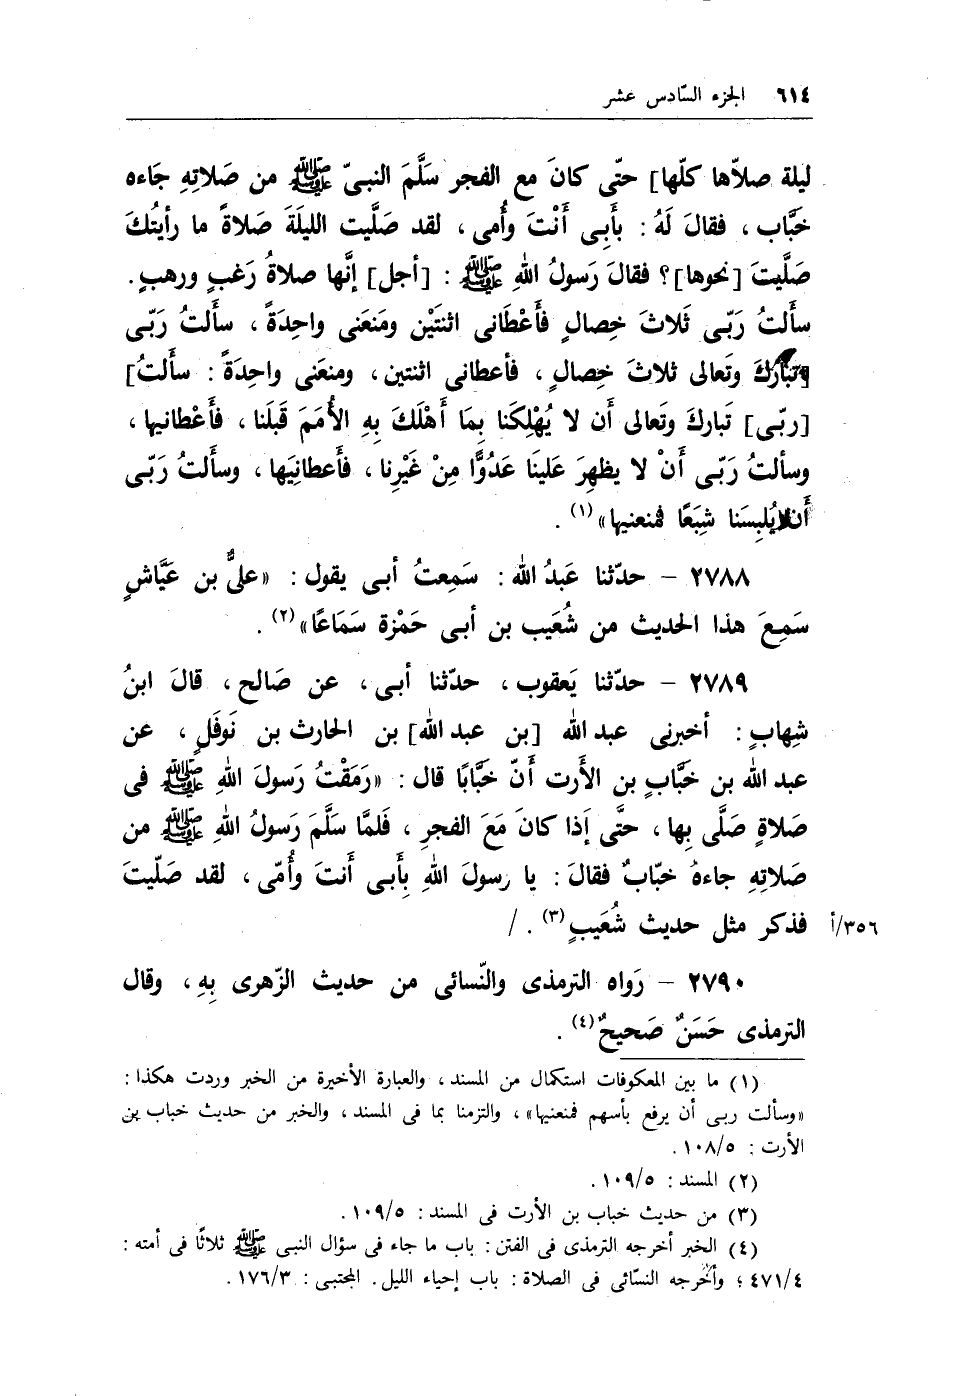 ٦١٤ الجزء السّادس عشر
ليلة صلاّها كلّها] حتّى كانَ مع الفجر سَلَّمَ النبىّ ﷺ من صَلاتِهِ جَاءه
خَبَّاب، فقالَ لَهُ: بأَبِى أَنْتَ وأُمى، لقد صَلَّيت الليلَةَ صَلاةً ما رأيتُكَ
صَلَّيتَ [نحوها]؟ فقالَ رَسولُ اللهِ ﷺ: [أجل] إنَّها صلاةُ رَغبٍ ورهبٍ.
سأَلتُ رَبّى ثَلاثَ خِصالٍ فأَعْطَانى اثنتَيْن ومَنعَنى واحِدَةً، سأَلتُ رَبّى
وتَبارَكَ وتَعالى ثلاثَ خِصالٍ، فأعطانى اثنتين، ومنعَنى واحِدَةً: سأَلتُ]
[ربّى] تَبارَكَ وتَعالى أَن لا يُهْلِكَنا بِمَا أَهْلَكَ بِهِ الأُمَمَ قَبلَنا، فأَعْطانيها،
وسألتُ رَبّى أَنْ لا يظهِرَ عَلينَا عَدُوًّا مِنْ غَيْرِنا، فأَعطانِيَها، وسألتُ رَبّى
أَن لا يُلبِسَنا شِيَعًا فمنعنيها»(١).
٢٧٨٨ – حدّثنا عَبدُ الله: سَمِعتُ أبى يقول: «علىُّ بن عَيَّاشٍ
سَمِعَ هذا الحديث من شُعَيب بن أبى حَمْزة سَمَاعًا»(٢).
٢٧٨٩ – حدّثنا يَعقوب، حدّثنا أبى، عن صَالح، قالَ ابنُ
شِهابٍ: أخبرنى عبد الله [بن عبد الله] بن الحارث بن نَوفَلٍ، عن
عبد الله بن خَبَّابٍ بن الأَرت أَنّ خَبَّابًا قال: «رَمَقْتُ رَسولَ اللهِ ﷺ فى
صَلاةٍ صَلَّى بِها، حتَّى إذا كانَ مَعَ الفجرِ، فَلمَّا سَلَّمَ رَسولُ اللهِ ﷺ من
صَلاتِهِ جاءهُ خبّابٌ فقالَ: يا رسولَ اللهِ بِأَبى أَنتَ وأُمّى، لقد صَلّيتَ
فذكر مثل حديث شُعَيبٍ(٣). / ٣٥٦/أ
٢٧٩٠ – رَواه الترمذى والنّسائى من حديث الزّهرى بِهِ، وقال
الترمذى حَسَنٌ صَحيحٌ(٤).
(١) ما بين المعكوفات استكمال من المسند، والعبارة الأخيرة من الخبر وردت هكذا:
«وسألت ربى أن يرفع بأسهم فمنعنيها»، والتزمنا بما فى المسند، والخبر من حديث خباب بن
الأرت: ١٠٨/٥.
(٢) المسند: ١٠٩/٥.
(٣) من حديث خباب بن الأرت فى المسند: ١٠٩/٥.
(٤) الخبر أخرجه الترمذى فى الفتن: باب ما جاء فى سؤال النبى ﷺ ثلاثًا فى أمته:
٤٧١/٤؛ وأخرجه النسّائى فى الصلاة: باب إحياء الليل. المجتبى: ١٧٦/٣.